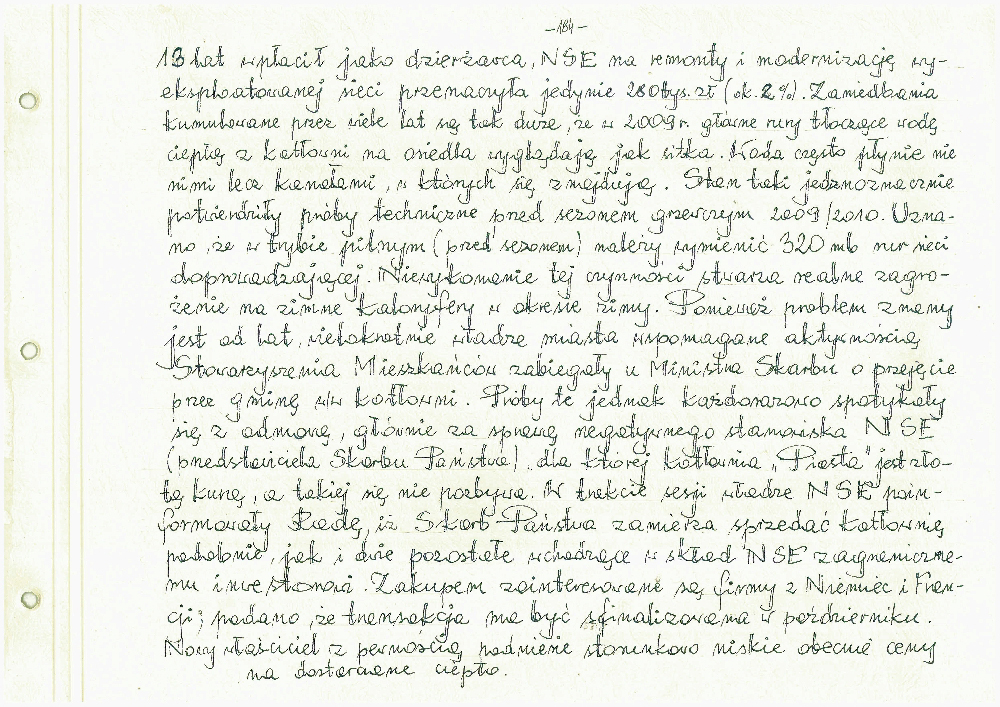 -184-
13 lat wpłacił jako dzierżawca, NSE na remonty i modernizację wy-
eksploatowanej sieci przeznaczyła jedynie 280 tys. zł (ok. 2%). Zaniedbania
kumulowane przez wiele lat są tak duże, że w 2009 r. główne rury tłoczące wodę
ciepłą z kotłowni na osiedla wyglądają jak sitka. Woda często płynie nie
nimi lecz kanałami, w których się znajdują. Stan taki jednoznacznie
potwierdziły próby techniczne przed sezonem grzewczym 2009/2010. Uzna-
no, że w trybie pilnym (przed sezonem) należy wymienić 320 mb rur sieci
doprowadzającej. Niewykonanie tej czynności stwarza realne zagro-
żenie na zimne kaloryfery w okresie zimy. Ponieważ problem znany
jest od lat, wielokrotnie władze miasta wspomagane aktywnością
Stowarzyszenia Mieszkańców zabiegały u Ministra Skarbu o przejęcie
przez gminę w/w kotłowni. Próby te jednak każdorazowo spotykały
się z odmową, głównie za sprawą negatywnego stanowiska NSE
(przedstawiciela Skarbu Państwa), dla której kotłownia „Piasta" jest zło-
tą kurą, a takiej się nie pozbywa. W trakcie sesji władze NSE poin-
formowały Radę, iż Skarb Państwa zamierza sprzedać kotłownię
podobnie, jak i dwie pozostałe wchodzące w skład NSE zagraniczne-
mu inwestorowi. Zakupem zainteresowane są firmy z Niemiec i Fran-
cji; podano, że transakcja ma być sfinalizowana w październiku.
Nowy właściciel z pewnością podniesie stosunkowo niskie obecnie ceny
na dostarczane ciepło.